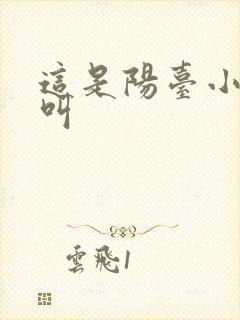 這是陽臺小
叫
雲飛1